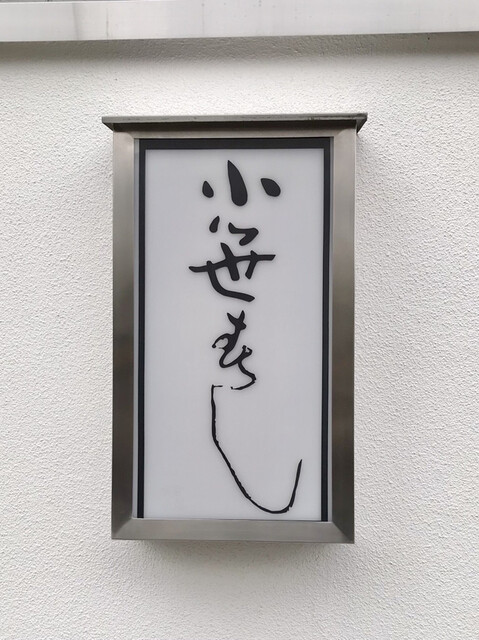 小笹寿し